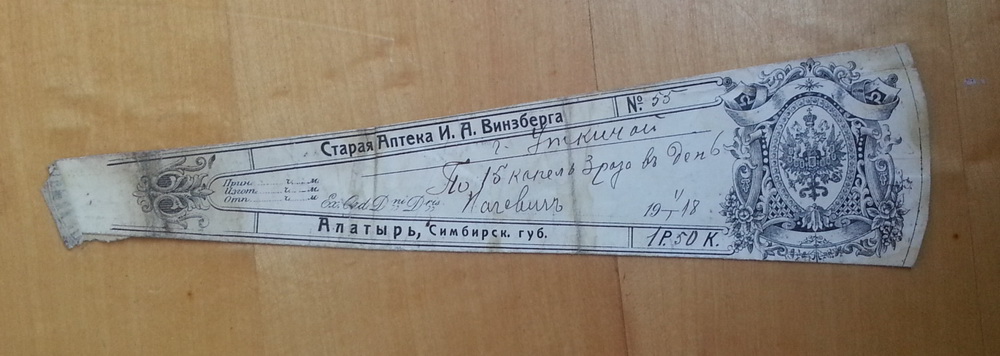 Старая Аптека И. А. Винзберга
№ 55
г. Уткиной
По 15 капель 3 раза въ день
Прин. ч. м
Изгот. ч. м
Отп. ч. м
Ex. ord. Dni Dris
19 1/I 18
Алатырь, Симбирск. губ.
1 Р. 50 К.